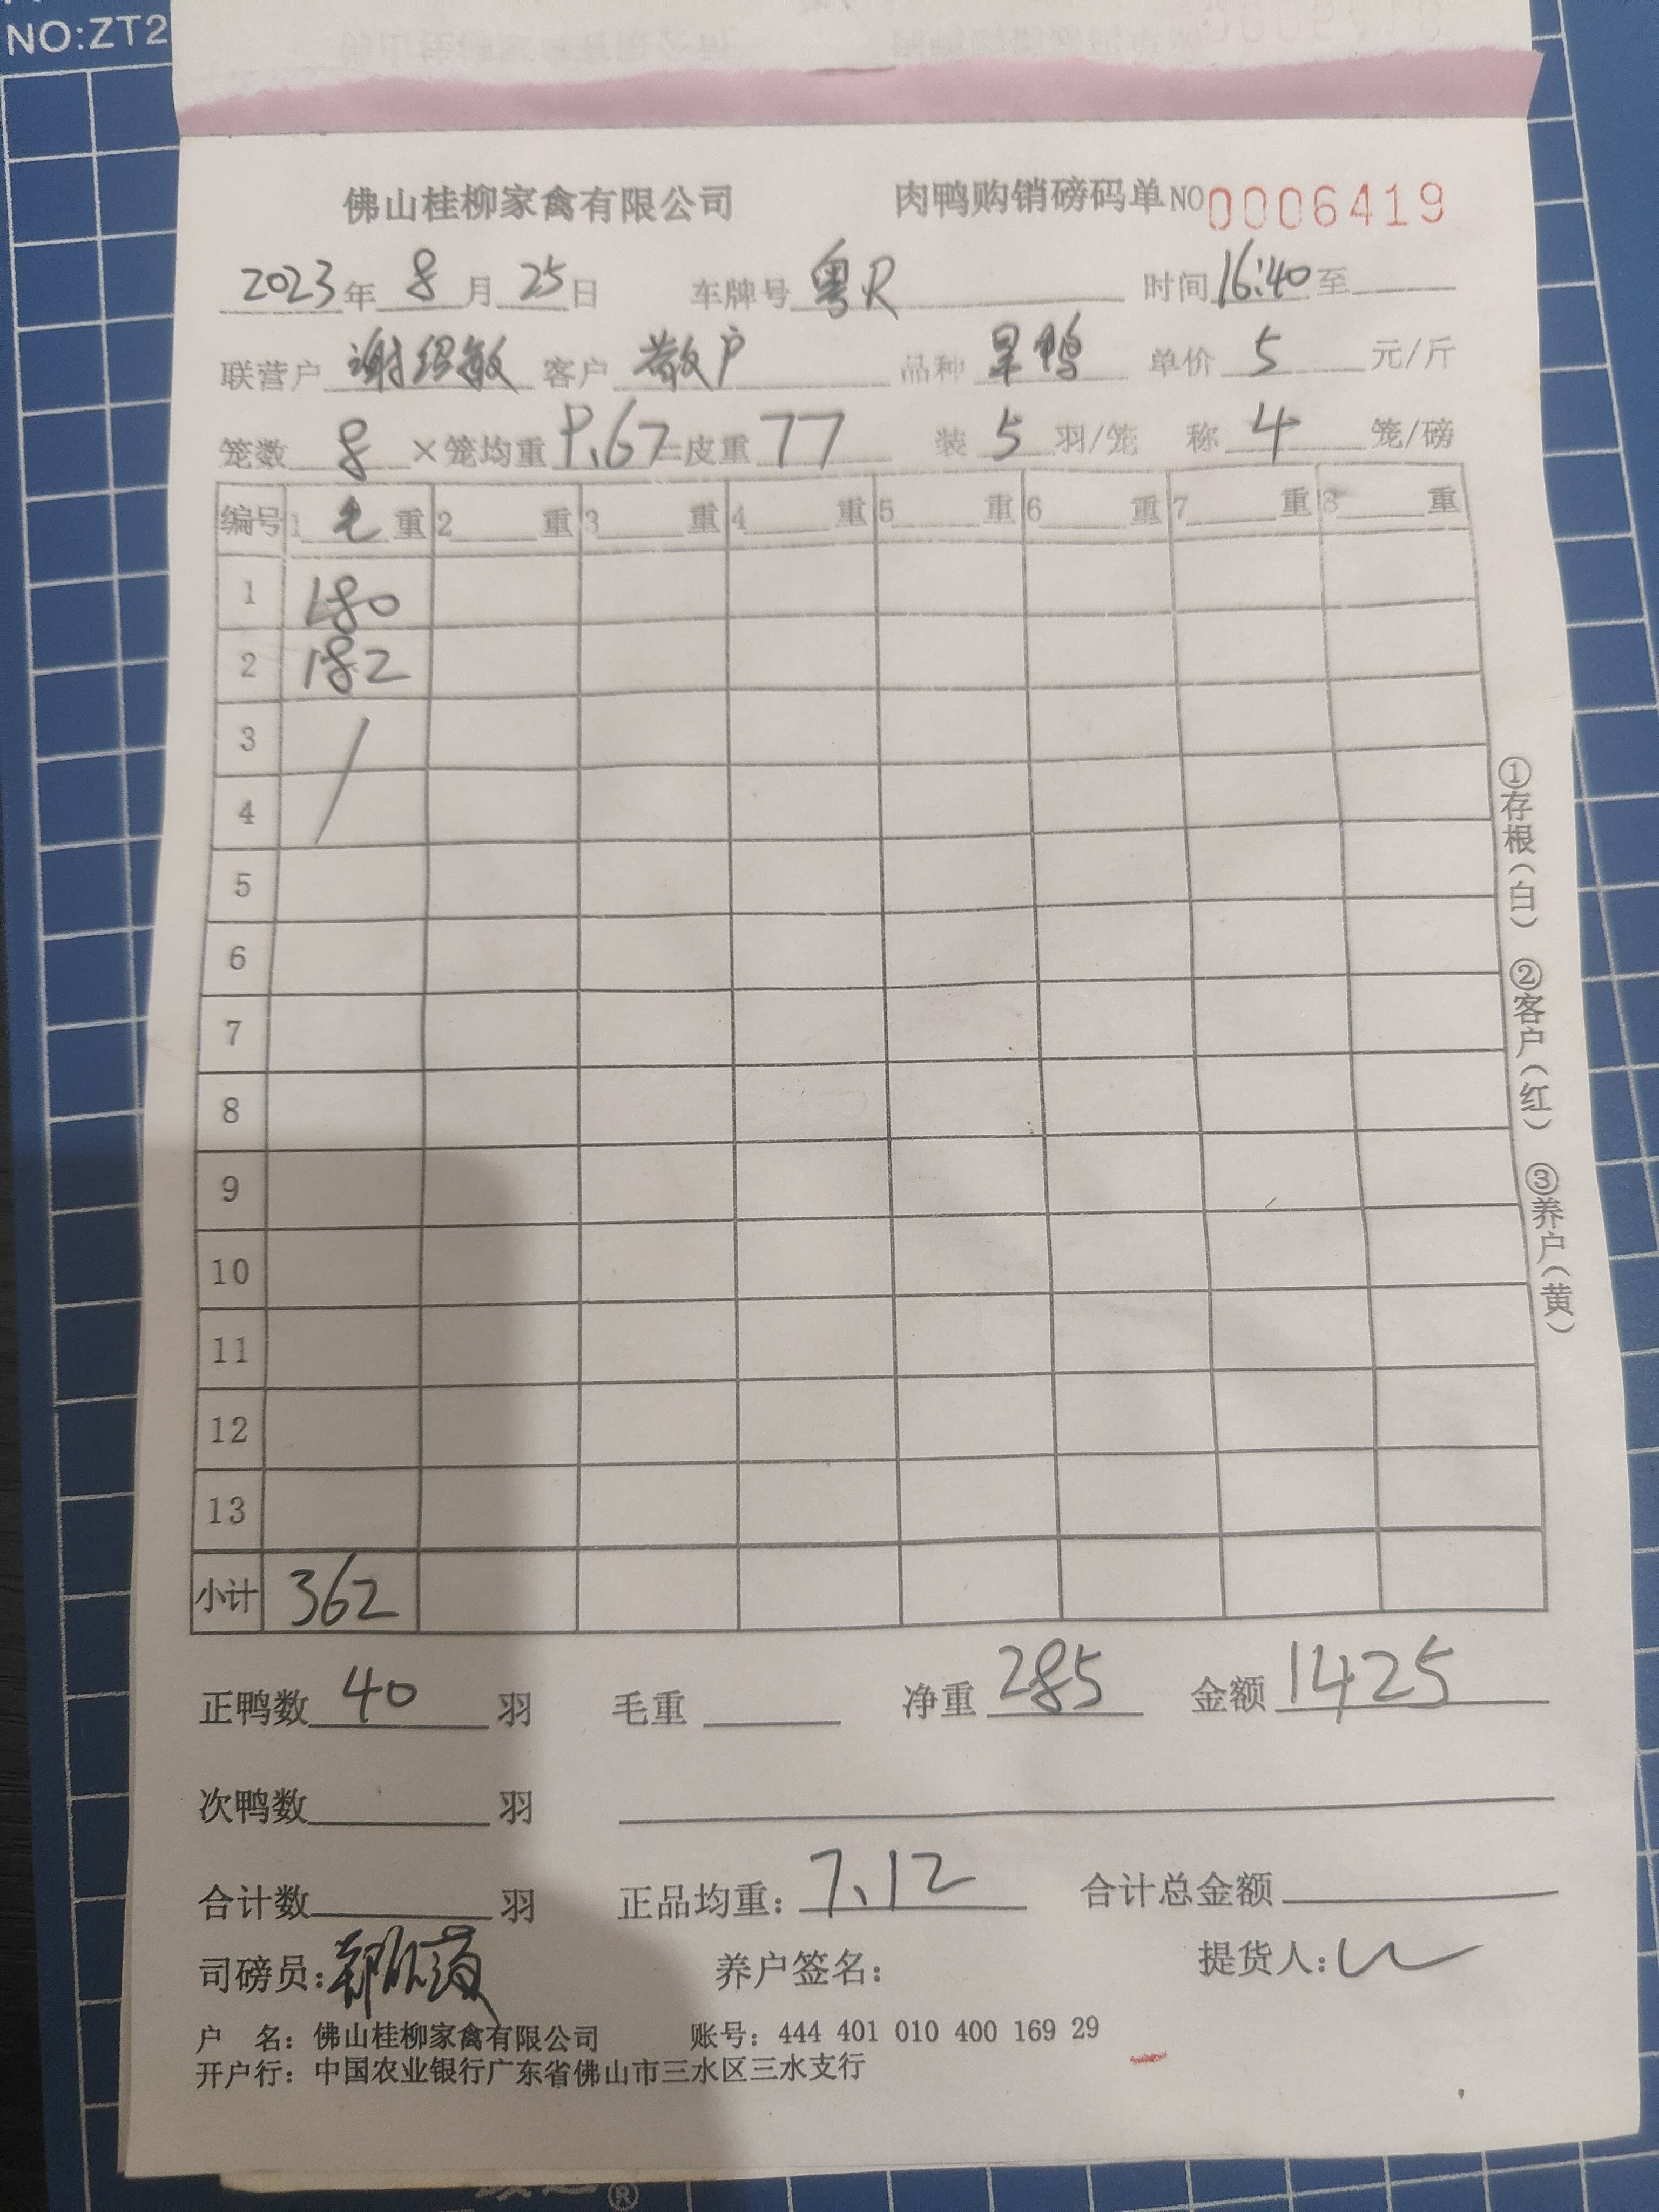 NO:ZT2
佛山桂柳家禽有限公司 肉鸭购销磅码单 NO 0006419
2023年 8月 25日 车牌号 粤R 时间 16:40 至
联营户 谢绍敏 客户 散户 品种 旱鸭 单价 5 元/斤
笼数 8 ×笼均重 9.67 =皮重 77 装 5 羽/笼 称 4 笼/磅
编号 1 毛 重 2 重 3 重 4 重 5 重 6 重 7 重 8 重
1 180
2 182
3 /
4
5
6
7
8
9
10
11
12
13
小计 362
①存根(白) ②客户(红) ③养户(黄)
正鸭数 40 羽 毛重 净重 285 金额 1425
次鸭数 羽
合计数 羽 正品均重: 7.12 合计总金额
司磅员: 养户签名: 提货人:
户 名: 佛山桂柳家禽有限公司 账号: 444 401 010 400 169 29
开户行: 中国农业银行广东省佛山市三水区三水支行